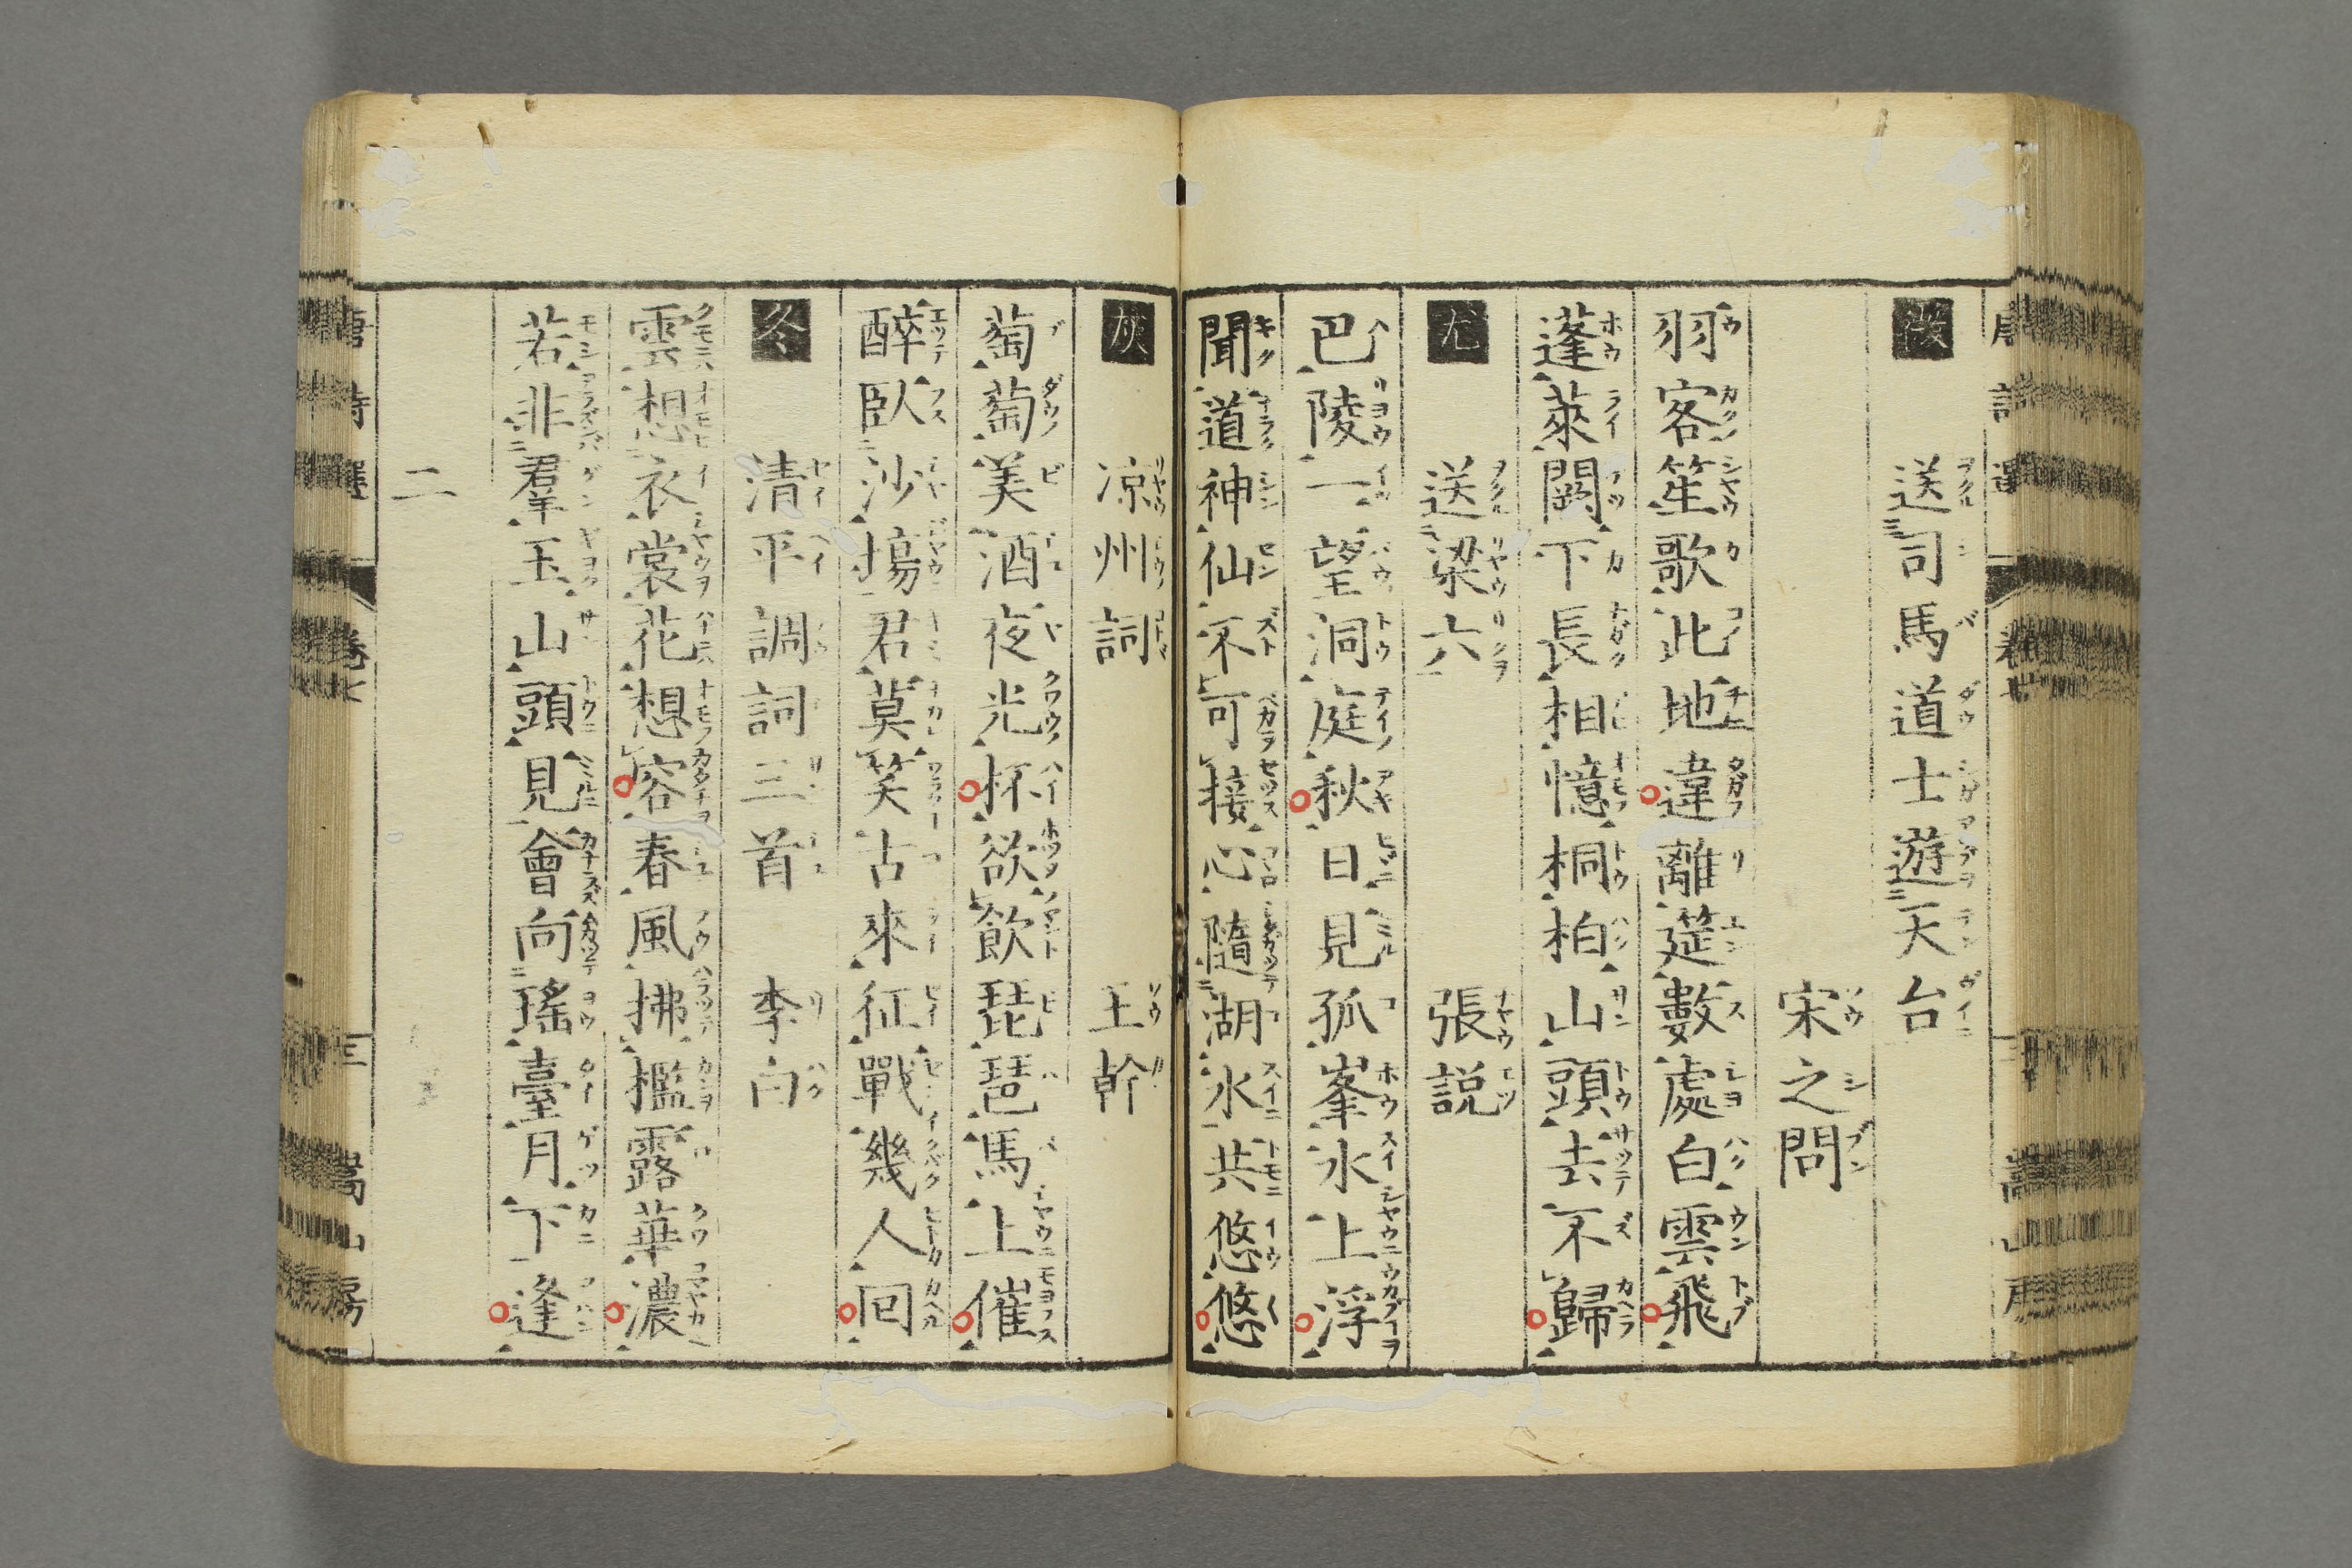 微
送司馬道士遊天台
宋之問
羽客笙歌此地違離筵數處白雲飛
蓬萊闕下長相憶桐柏山頭去不歸
尤
送梁六
張説
巴陵一望洞庭秋日見孤峯水上浮
聞道神仙不可接心隨湖水共悠悠
灰
凉州詞
王幹
萄萄美酒夜光杯欲飲琵琶馬上催
醉臥沙塲君莫笑古來征戰幾人回
冬
清平調詞三首
李白
雲想衣裳花想容春風拂檻露華濃
若非羣玉山頭見會向瑤臺月下逢
二
唐詩選 卷七 三 嵩山房